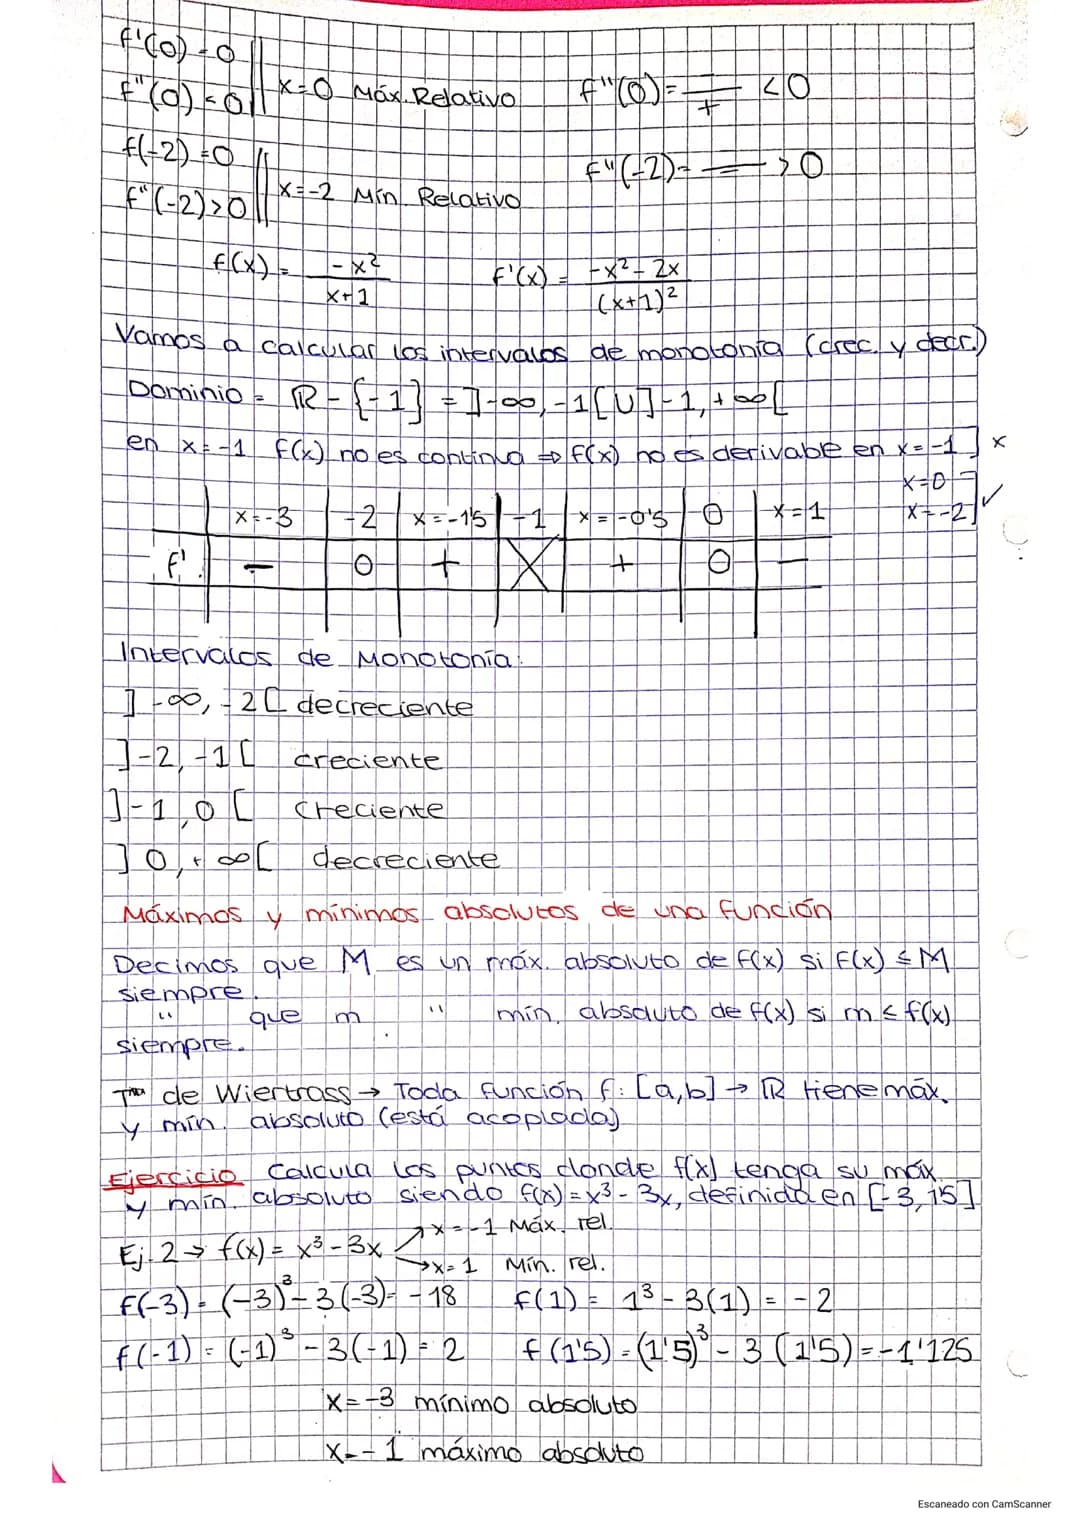 f'(0) = 0
f''(0) < 0 || x=0 Máx. Relativo f''(0) = —/+ < 0
f(-2) = 0
f''(-2) > 0 || x=-2 Mín. Relativo f''(-2) = —/— > 0
f(x) = -x²/(x+1) f'(x) = (-x² - 2x)/(x+1)²
Vamos a calcular los intervalos de monotonía (crec. y decr.)
Dominio = ℝ - {-1} = ]-∞, -1[ U ]-1, +∞[
en x=-1 f(x) no es continua ⇒ f(x) no es derivable en x=-1 ] x
x=0
x=-2 ] ✓
x=-3 | -2 | x=-1'5 | -1 | x=-0'5 | 0 | x=1
f' | − | 0 | + | X | + | 0 | −
Intervalos de Monotonía:
]-∞, -2[ decreciente
]-2, -1[ creciente
]-1, 0[ creciente
]0, +∞[ decreciente
Máximos y mínimos absolutos de una función
Decimos que M es un máx. absoluto de f(x) si f(x) ≤ M
siempre.
" que m " mín. absoluto de f(x) si m ≤ f(x)
siempre.
Tma de Wiertrass → Toda función f: [a,b] → ℝ tiene máx.
y mín. absoluto (está acoplada)
Ejercicio Calcula los puntos donde f(x) tenga su máx
y mín. absoluto siendo f(x) = x³ - 3x, definida en [-3, 1'5]
Ej. 2 → f(x) = x³ - 3x ↗ x=-1 Máx. rel.
→ x=1 Mín. rel.
f(-3) = (-3)³ - 3(-3) = -18 f(1) = 1³ - 3(1) = -2
f(-1) = (-1)³ - 3(-1) = 2 f(1'5) = (1'5)³ - 3(1'5) = -1'125
x=-3 mínimo absoluto
x=-1 máximo absoluto
Escaneado con CamScanner